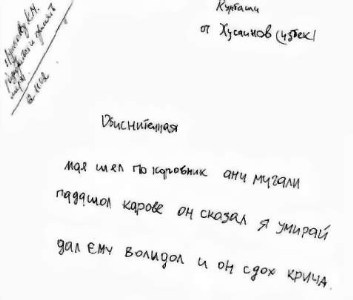 Курташи
от Хусаинов (узбек)
Обиснительная
мая шел по коровник ани мугали
падашол карове он сказал я умирай
дал ему волидол и он сдох крича.